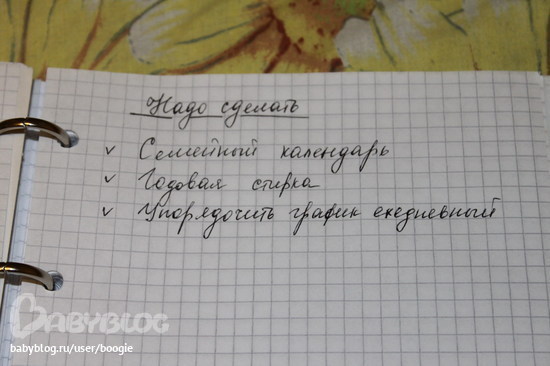 Надо сделать
✓ Семейный календарь
✓ Годовая стирка
✓ Упорядочить график ежедневный
BABYBLOG
babyblog.ru/user/boogie